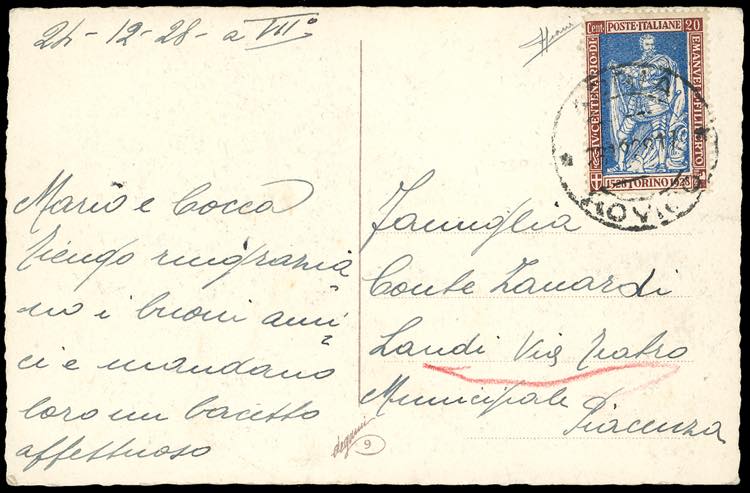 24-12-28-a VII°
Mario e Cocca
Viengo ringrazia
no i buoni ami=
ci e mandano
loro un bacetto
affettuoso
Cent. POSTE·ITALIANE 20
IV·CENTENARIO·DI
EMANVELE·FILIBERTO
1528 TORINO 1928
Famiglia
Conte Zanardi
Landi Via Teatro
Municipale
Piacenza
9